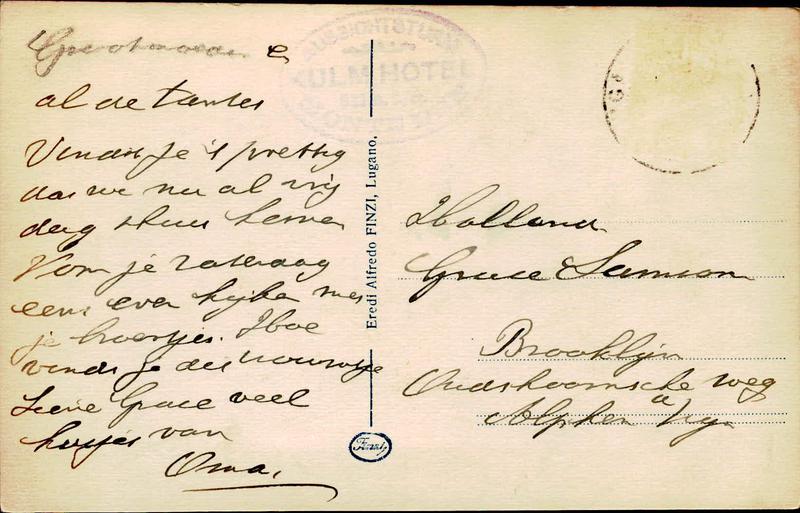 Grootmoeder e
al de tantes
Vindt je 't prettig
dat we nu al vrij
dag thuis komen
Kom je zaterdag
eens even kijken met
je broertjes. Hoe
vindt je dit vrouwtje
Lieve Grace veel
kusjes van
Oma.
AUSSICHTSTURM
KULM HOTEL
MONTE
Eredi Alfredo FINZI, Lugano,
Finzi
Holland
Grace Samson
Brooklyn
Oudshoornsche weg
Alphen a/Rijn